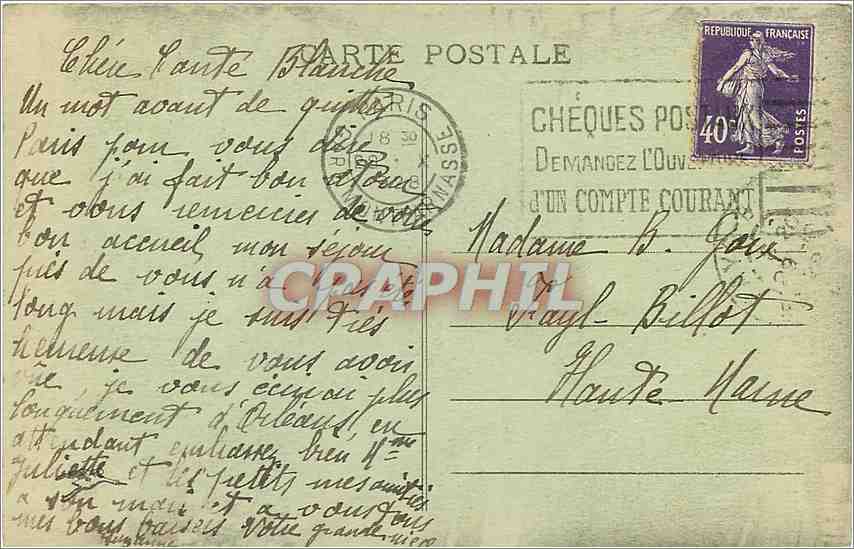 CARTE POSTALE
Chère Tante Blanche
Un mot avant de quitter
Paris pour vous dire
que j'ai fait bon
et vous remercier de votre
bon accueil, mon séjour
près de vous n'a pas été
long mais je suis très
heureuse de vous avoir
vue, je vous écrirai plus
longuement d'Orléans, en
attendant embrassez bien Mme
Juliette et les petits mes amitiés
a son mari et a vous tous
mes bons baisers Votre grande nièce
Suzanne
PARIS
18 30
X
MONTPARNASSE
CHÈQUES
DEMANDEZ L'OUVERTURE
d'UN COMPTE COURANT
REPUBLIQUE FRANÇAISE
40c
POSTES
Madame B.
Fayl-Billot
Haute Marne
CRAPHIL